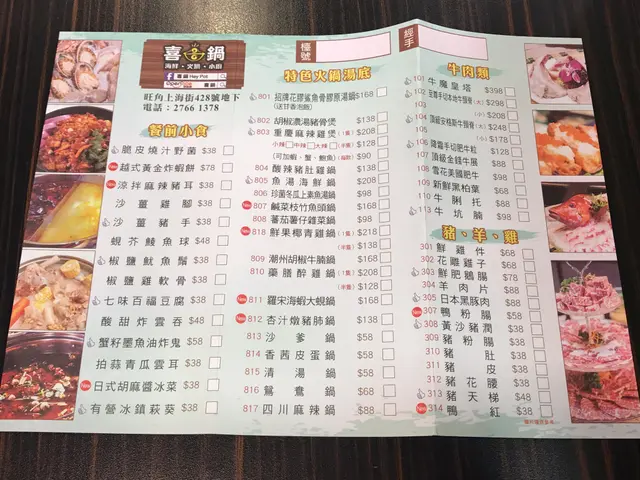 喜鍋
海鮮・火鍋・小廚
喜鍋 Hey Pot
旺角上海街428號地下
電話：2766 1378
餐前小食
脆皮燒汁野菌 $38
New 越式黃金炸蝦餅 $78
涼拌麻辣豬耳 $38
沙薑雞腳 $38
沙薑豬手 $38
蜆芥鯪魚球 $48
椒鹽魷魚鬚 $38
椒鹽雞軟骨 $38
七味百福豆腐 $38
酸甜炸雲吞 $48
蟹籽墨魚油炸鬼 $58
拍蒜青瓜雲耳 $38
New 日式胡麻醬冰菜 $38
有營冰鎮萩葵 $38
檯號
經手
特色火鍋湯底
801 招牌花膠鯊魚骨膠原湯鍋 $168
(送甘香泡飯)
802 胡椒濃湯豬骨煲 $138
803 重慶麻辣雞煲
小辣 中辣 大辣
(可加蝦、蟹、鮑魚)
804 酸辣豬肚雞鍋 $138
805 魚湯海鮮鍋 $208
806 珍菌冬瓜上素魚湯鍋 $98
New 807 鹹菜枝竹魚頭鍋 $168
808 蕃茄薯仔雞菜鍋 $98
818 鮮果椰青雞鍋 $218
$138
809 潮州胡椒牛腩鍋 $168
810 藥膳醉雞鍋 $208
$128
New 811 羅宋海蝦大蜆鍋 $168
New 812 杏汁燉豬肺鍋 $138
813 沙爹鍋 $58
814 香茜皮蛋鍋 $58
815 清湯鍋 $58
816 鴛鴦鍋 $68
817 四川麻辣鍋 $88
牛肉類
101 牛魔皇塔 $398
102 至尊手切本地牛頸脊(大) $298
103 (小) $208
104 頂級安格斯牛頸脊(大) $248
105 (小) $178
106 隆霜手切肥牛粒 $128
107 頂級金錢牛展 $98
108 雪花美國肥牛 $98
109 新鮮黑柏葉 $68
110 牛脷托 $88
113 牛坑腩 $98
豬、羊、雞
301 鮮雞件 $68
302 花雕雞子 $68
303 鮮肥鵝腸 $78
304 羊肉片 $88
305 日本黑豚肉 $88
New 307 鴨粉腸 $58
308 黃沙豬潤 $38
309 豬粉腸 $38
310 豬肚 $38
311 豬皮 $38
312 豬花腰 $38
313 豬天梯 $48
New 314 鴨紅 $38